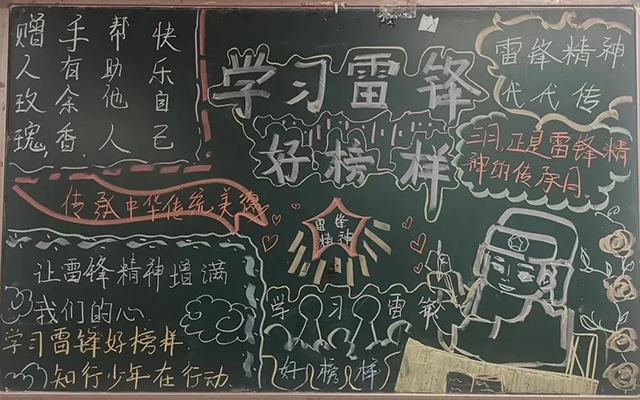 赠人玫瑰,
手有余香,
帮助他人
快乐自己
学习雷锋
好榜样
雷锋精神
代代传
三月,正是雷锋精
神的传承月.
传承中华传统美德
雷锋
精神
让雷锋精神增满
我们的心.
学习雷锋好榜样
知行少年在行动.
学习雷锋
好榜样